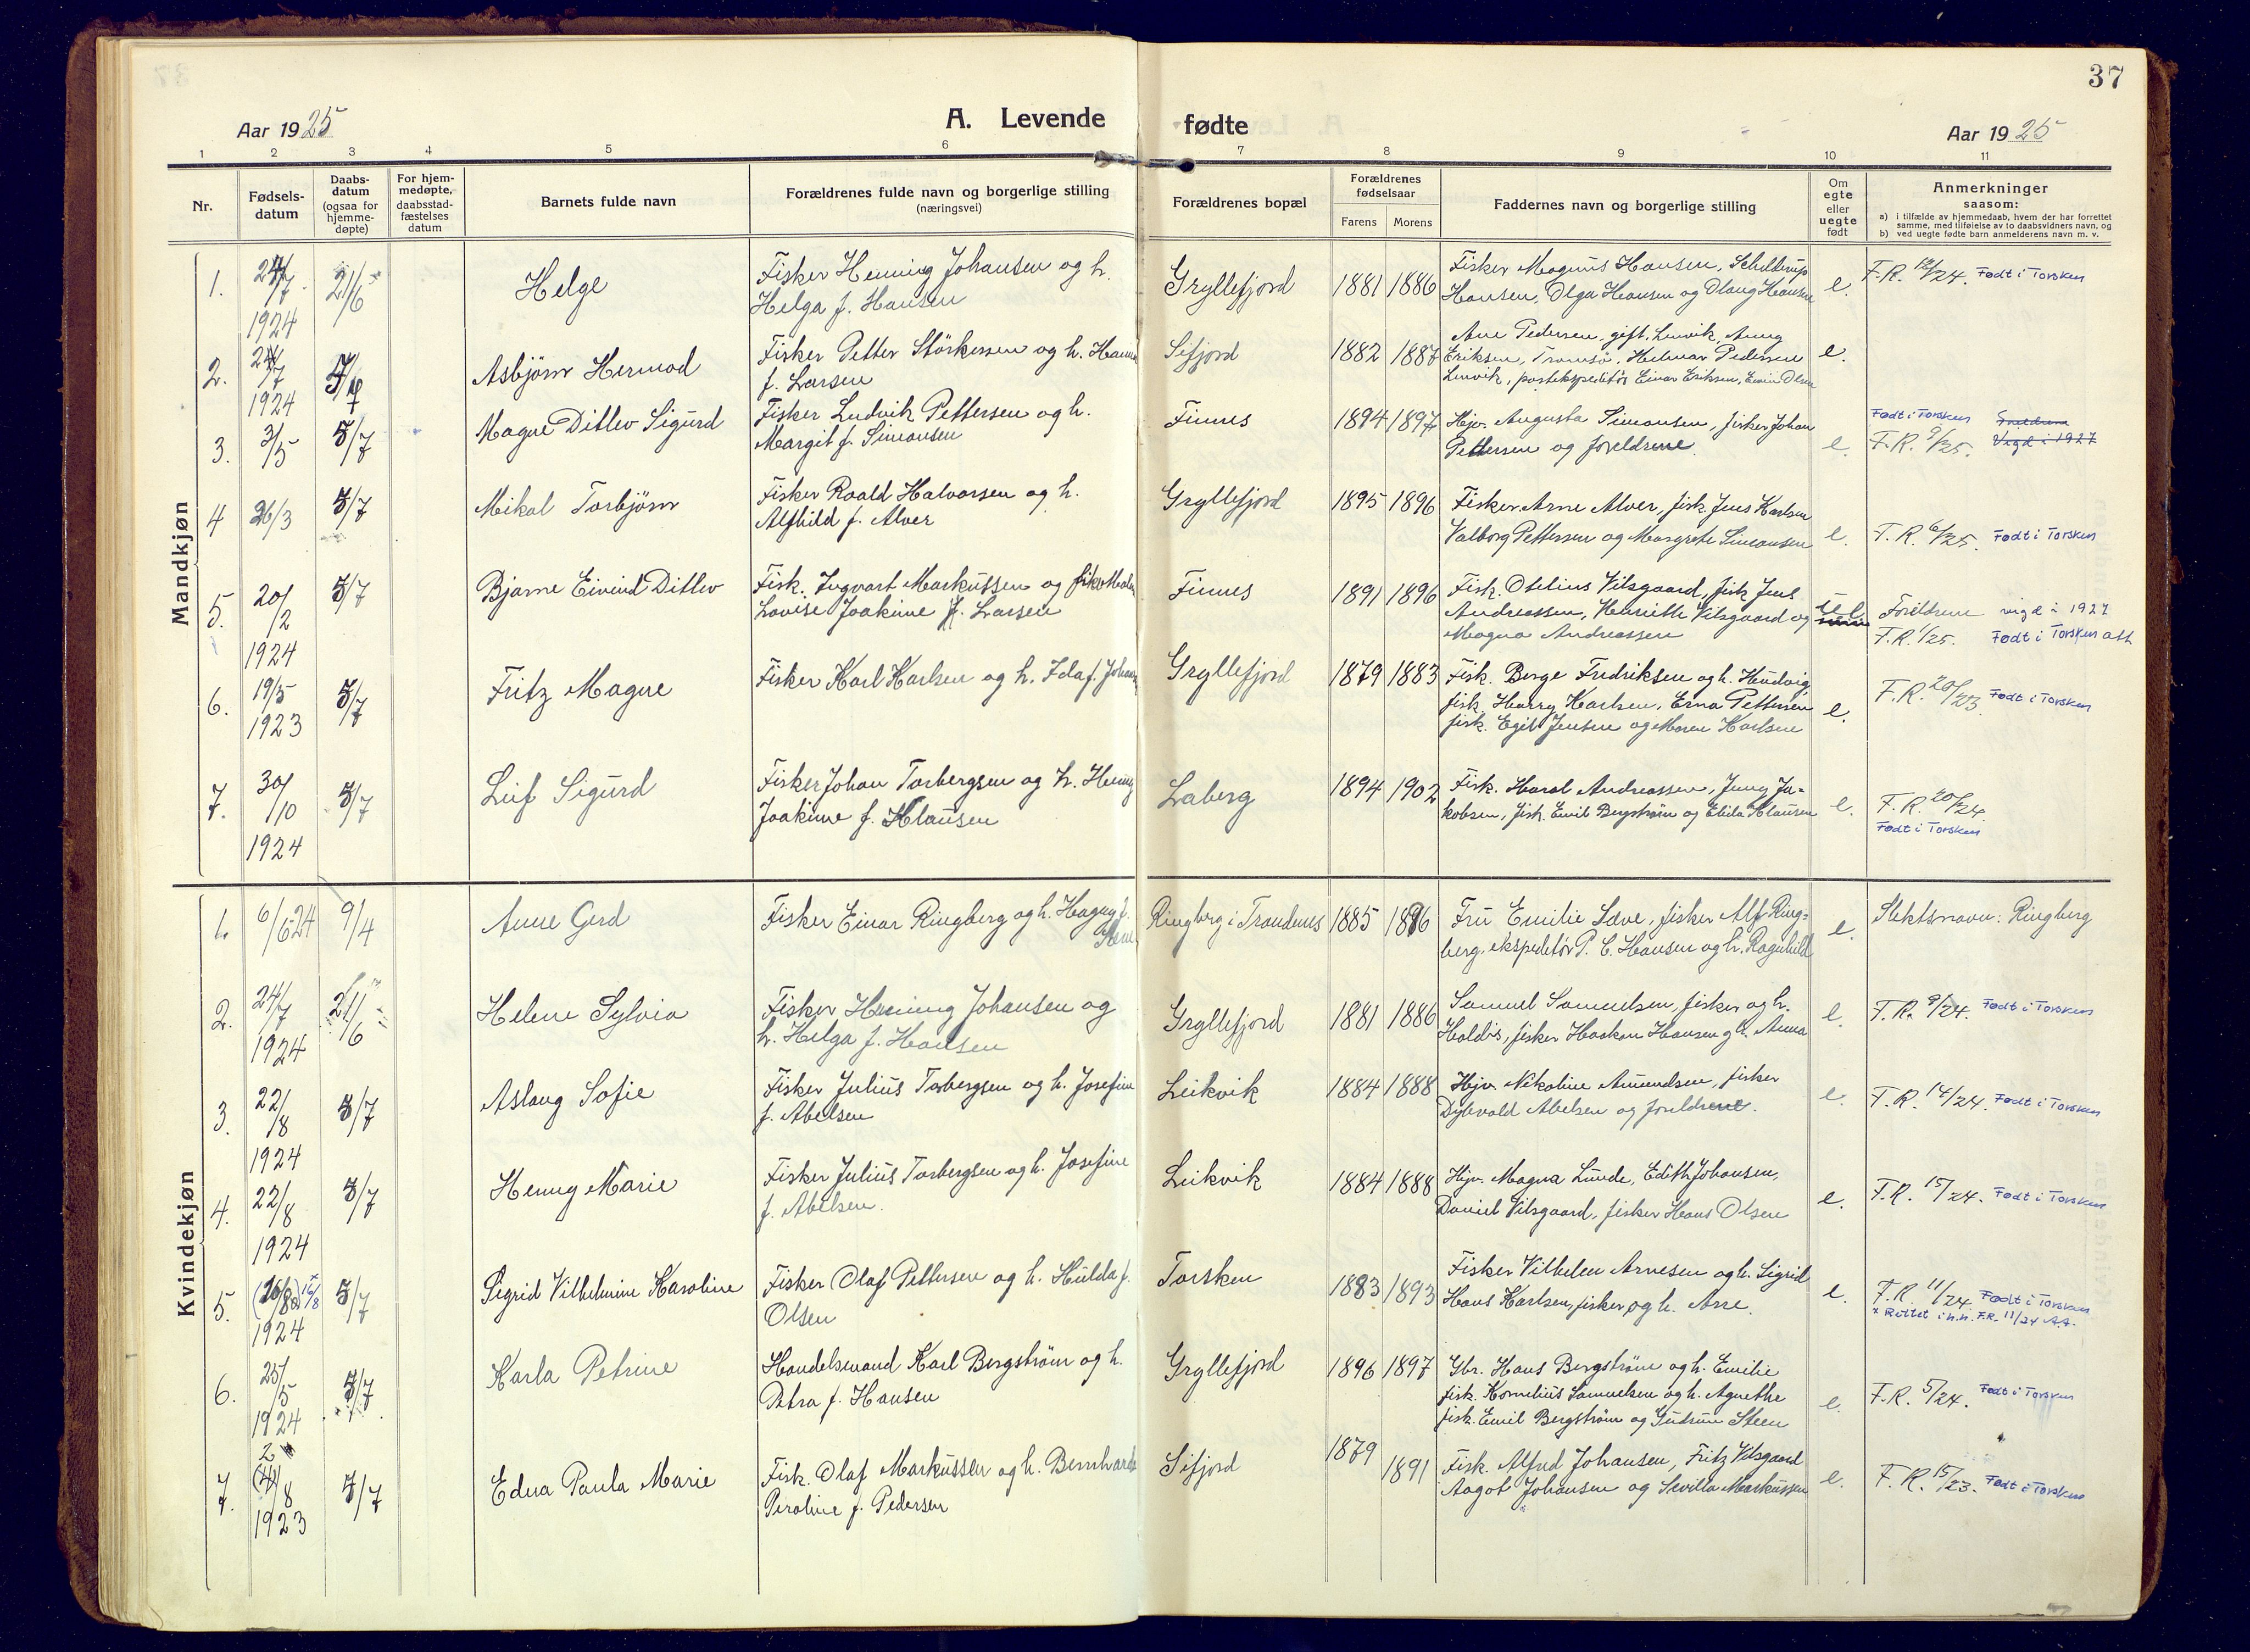 37
Aar 1925
A. Levende fødte
Aar 1925
1 2 3 4 5 6 7 8 9 10 11
Nr.
Fødsels-
datum
Daabs-
datum
(ogsaa for
hjemme-
døpte)
For hjem-
medøpte,
daabsstad-
fæstelses
datum
Barnets fulde navn
Forældrenes fulde navn og borgerlige stilling
(næringsvei)
Forældrenes bopæl
Forældrenes
fødselsaar
Farens Morens
Faddernes navn og borgerlige stilling
Om
egte
eller
uegte
født
Anmerkninger
saasom:
a) i tilfælde av hjemmedaab, hvem der har forrettet
samme, med tilføielse av to daabsvidners navn, og
b) ved uegte fødte barn anmelderens navn m. v.
Mandkjøn
1. 24/7 1924 21/6 Helge
Fisker Henning Johansen og h.
Helga f. Hansen
Gryllefjord 1881 1886
Fisker Magnus Hansen, Schelderup
Hansen, Olga Hansen og Olaug Hansen
e. F.R. 12/24. Født i Torsken
2. 1924 Asbjørn Hermod
Fisker Petter Störkersen og h. Hanna
f. Larsen
Sifjord 1882 1887
Ane Pedersen, gift, Lenvik, Aung
Eriksen, Tromsø, Helmar Pedersen
Lenvik, postekspeditør Einar Eriksen, Olsen
e.
3. 3/5 5/7 Magne Ditlev Sigurd
Fisker Ludvik Pettersen og h.
Margit f. Simonsen
Finnes 1894 1897
Hjv. Augusta Simonsen, fisker Johan
Pettersen og foreldrene.
e. Født i Torsken
F.R. 9/25. Vigd i 1927
4 26/3 5/7 Mikal Torbjørn
Fisker Roald Halvorsen og h.
Alfhild f. Alver
Gryllefjord 1895 1896
Fisker Arne Alver, fisk. Jens Karlsen
Valborg Pettersen og Margrete Simonsen
e. F.R. 6/25. Født i Torsken
5. 20/2 5/7 Bjarne Eivind Ditlev
Fisk. Ingvart Markussen og
Lovise Joakime f. Larsen
Finnes 1891 1896
Fisk. Otelius Vilsgaard, fisk Jens
Andreassen, Henriette Vilsgaard og
Magna Andreassen
Foreldrene vigd i 1927
F.R. 1/25. Født i Torsken
1924
6. 19/5 1923 5/7 Fritz Magne
Fisker Karl Karlsen og h. Ida f.
Gryllefjord 1879 1883
Fisk. Berge Fredriksen og h. Hudvig,
fisk. Harry Karlsen, Erna Pettersen
fisk. Egil Jensen og Maren Karlsen
e. F.R. 20/23. Født i Torsken
7. 30/10 1924 5/7 Leif Sigurd
Fisker Johan Torbergsen og h. Henny
Joakime f. Klausen
Laberg 1894 1902
Fisk. Haral Andreassen, Jenny Ja-
kobsen, fisk. Emil Bergstrøm og Elida Klausen
e. F.R. 20/24.
Født i Torsken
Kvindekjøn
1. 6/6 24 9/4 Anne Gerd
Fisker Einar Ringberg og h. Hagny f.
Ringberg i Trondenes 1885 1896
Fru Emilie Løve, fisker Alf Ring-
berg, ekspeditør P. C. Hansen og h. Ragnhild
e. Slektsnavn: Ringberg
2. 24/7 1924 21/6 Helene Sylvia
Fisker Henning Johansen og
h. Helga f. Hansen
Gryllefjord 1881 1886
Samuel Samuelsen, fisker og h.
Haldis, fisker Haakon Hansen og h. Anna
e. F.R. 9/24. Født i Torsken
3. 22/8 1924 5/7 Aslaug Sofie
Fisker Julius Torbergsen og h. Josefine
f. Abelsen
Leikvik 1884 1888
Hjv. Nikoline Amundsen, fisker
Dybvald Abelsen og foreldrene.
e. F.R. 14/24. Født i Torsken
4. 22/8 1924 5/7 Henny Marie
Fisker Julius Torbergsen og h. Josefine
f. Abelsen.
Leikvik 1884 1888
Hjv. Magna Lunde, Edith Johansen,
Daniel Vilsgaard, fisker Hans Olsen
e. F.R. 15/24. Født i Torsken
5. 16/8 1924 5/7 Sigrid Vilhelmine Karoline
Fisker Olaf Pettersen og h. Hulda f.
Olsen
Torsken 1883 1893
Fisker Vilhelm Arnesen og h. Sigrid
Hans Karlsen, fisker og h. Arre.
e. F.R. 11/24 Født i Torsken
x Rettet i h.h. F.R. 11/24 A.A.
6. 25/5 1924 5/7 Karla Petrine
Handelsmand Karl Bergstrøm og h.
Petra f. Hansen
Gryllefjord 1896 1897
Gbr. Hans Bergstrøm og h. Emilie
fisk. Kornelius Samuelsen og h. Agnethe
fisk. Emil Bergstrøm og Gudrun Steen
e. F.R. 5/24. Født i Torsken
7. 1923 5/7 Edna Paula Marie
Fisk. Olaf Markussen og h. Bernharda
Peroline f. Pedersen
Sifjord 1879 1891
Fisk. Alfred Johansen, Fritz Vilsgaard
Aagot Johansen og Sevilla Markussen
e. F.R. 15/23. Født i Torsken